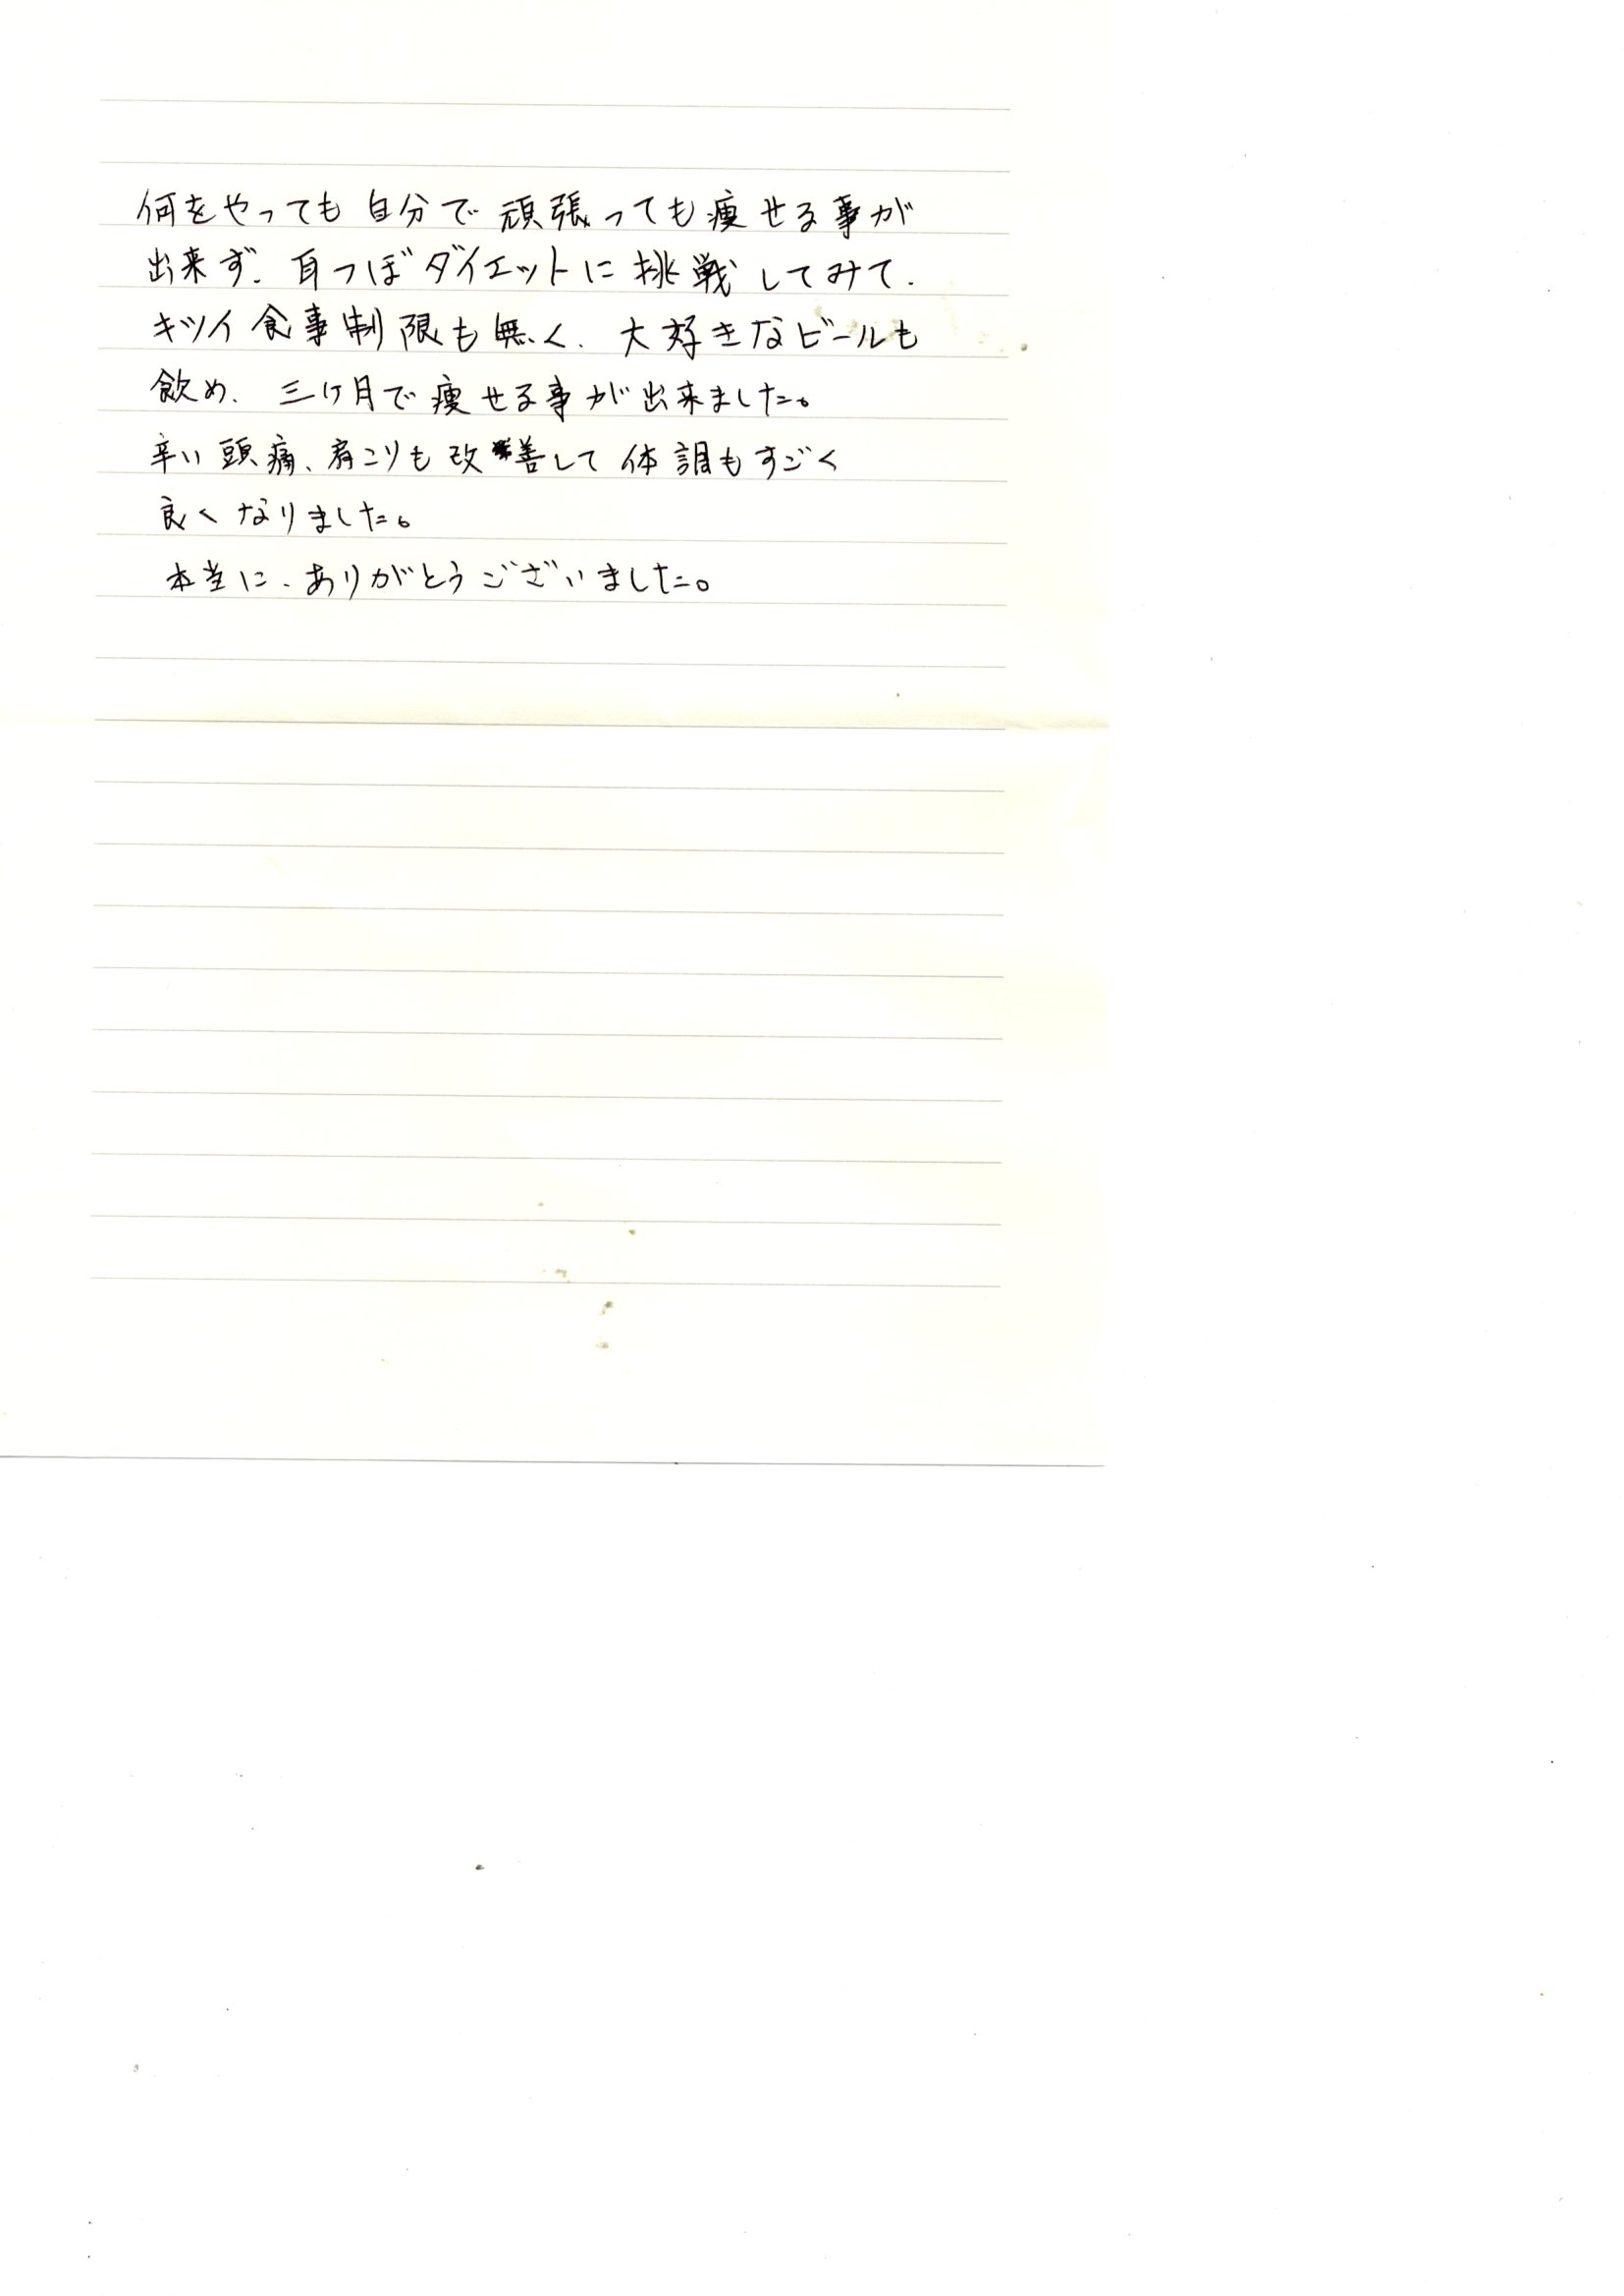 何をやっても自分で頑張っても痩せる事が
出来ず、耳つぼダイエットに挑戦してみて、
キツイ食事制限も無く、大好きなビールも
飲め、三ヶ月で痩せる事が出来ました。
辛い頭痛、肩こりも改善して体調もすごく
良くなりました。
本当に、ありがとうございました。